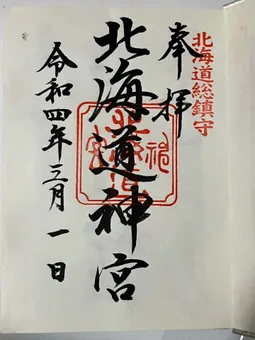 北海道総鎮守
奉拝
北海道神宮
令和四年三月一日